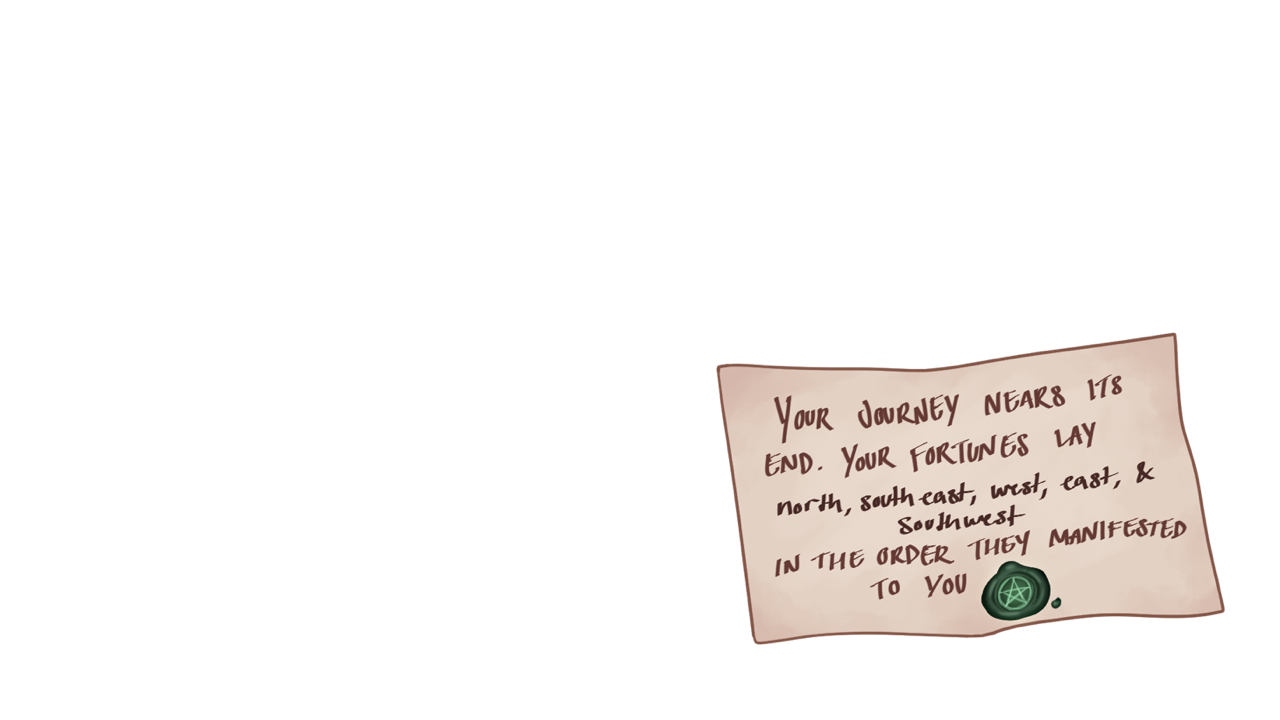 YOUR JOURNEY NEARS ITS
END. YOUR FORTUNES LAY
north, southeast, west, east, &
Southwest
IN THE ORDER THEY MANIFESTED
TO YOU